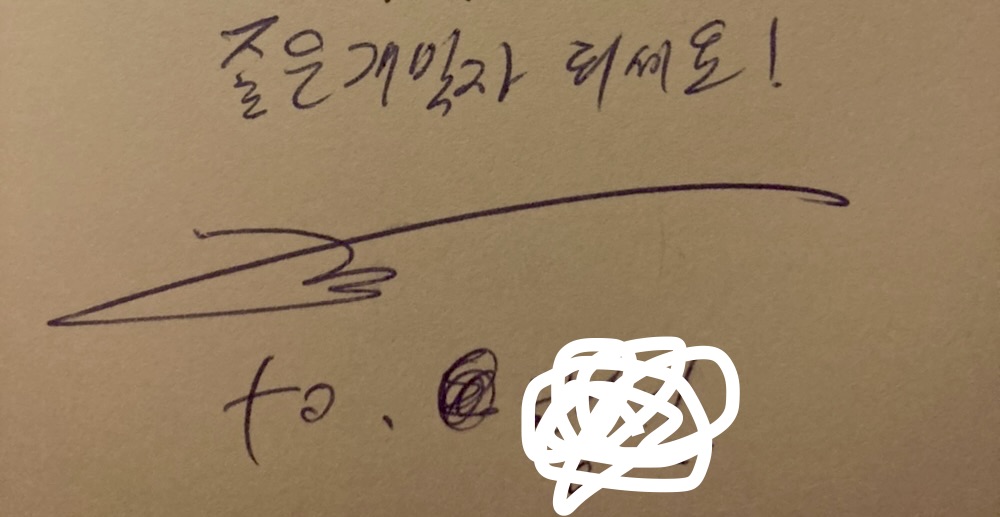 좋은 개발자 되세요!
to.